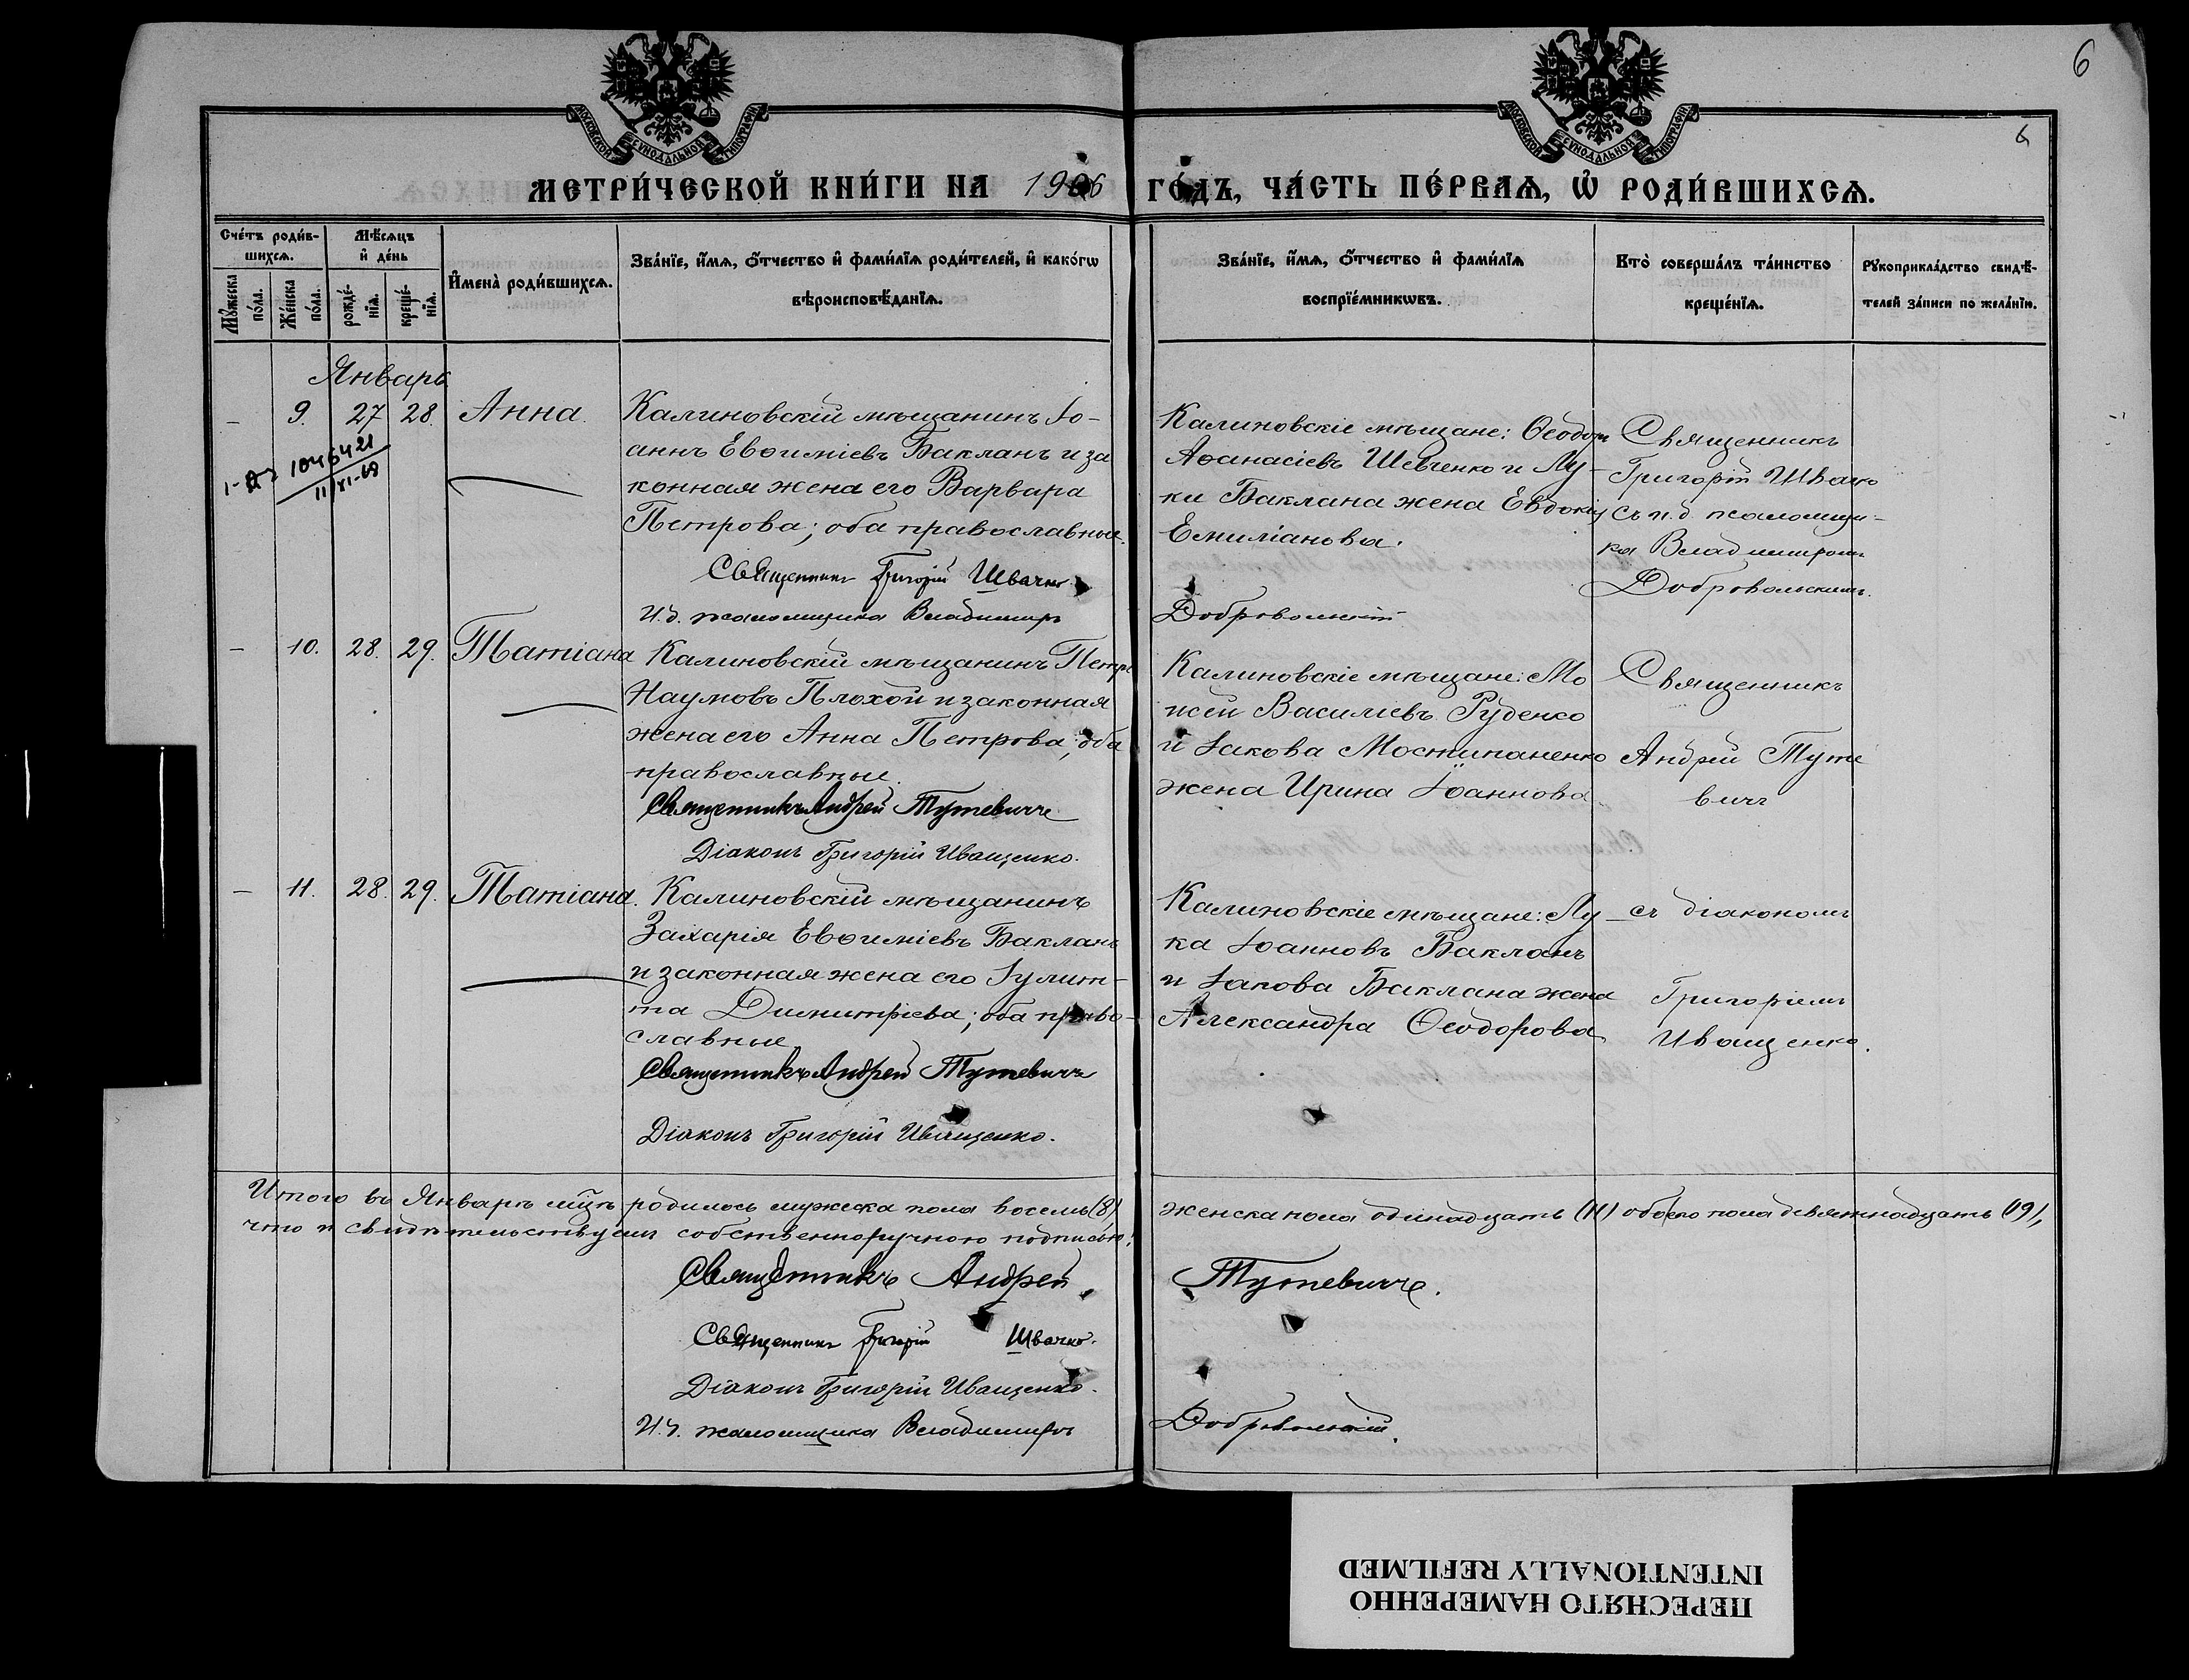 6
6
МОСКОВСКОЙ СѴНОДАЛЬНОЙ ТИПОГРАФІИ
МОСКОВСКОЙ СѴНОДАЛЬНОЙ ТИПОГРАФІИ
МЕТРИ́ЧЕСКОЙ КНИ́ГИ НА 1906 ГО́ДЪ, ЧА́СТЬ ПЕ́РВАѦ, Ѡ҆ РОДИ́ВШИХСѦ.
Сче́тъ роди́в-
шихсѧ.
Мꙋ́жеска по́ла.
Же́нска по́ла.
Мѣ́сѧцъ
и҆ де́нь
рожде́-
нїѧ.
креще́-
нїѧ.
И҆мена̀ роди́вшихсѧ.
Зва́нїе, и҆́мѧ, ѻ҆́тчество и҆ фами́лїѧ роди́телей, и҆ како́гѡ
вѣроисповѣ́данїѧ.
Зва́нїе, и҆́мѧ, ѻ҆́тчество и҆ фами́лїѧ
воспрїе́мникѡвъ.
Кто̀ соверша́лъ та́инство
креще́нїѧ.
Рꙋкоприкла́дство свидѣ́-
телей за́писи по жела́нїю.
Январь
– 9. 27 28. Анна.
1046421
11/XI-69
Калиновскій мѣщанинъ Іо-
аннъ Евѳиміевъ Бакланъ и за
конная жена его Варвара
Петрова; оба православные.
Священникъ Григорій Швачко
И.д. псаломщика Владимиръ Добровольскій
Калиновскіе мѣщане: Ѳеодоръ
Аѳанасіевъ Шевченко и Лу-
ки Баклана жена Евдокія
Емиліанова.
Священникъ
Григорій Швачко
съ и.д. псаломщи-
ка Владимиромъ
Добровольскимъ.
– 10. 28. 29. Татіана
Калиновскій мѣщанинъ Петръ
Наумовъ Плохой и законная
жена его Анна Петрова; оба
православные.
Священникъ Андрей Тутевичъ
Діаконъ Григорій Иващенко.
Калиновскіе мѣщане: Мо
исей Василіевъ Руденко
и Іакова Мостипаненко
жена Ирина Іоаннова.
Священникъ
Андрей Туте
вичъ
– 11. 28. 29. Татіана.
Калиновскій мѣщанинъ
Захарія Евѳиміевъ Бакланъ
и законная жена его Іулит-
та Димитріева; оба право-
славные
Священникъ Андрей Тутевичъ
Діаконъ Григорій Иващенко.
Калиновскіе мѣщане: Лу-
ка Іоанновъ Бакланъ
и Іакова Баклана жена
Александра Ѳеодорова
съ діакономъ
Григоріемъ
Иващенко.
Итого въ Январѣ мцѣ родилось мужеска пола восемь (8) женска пола одинадцать (11) обоего пола девятнадцать (19),
что и свидѣтельствуемъ собственноручною подписью:
Священникъ Андрей Тутевичъ.
Священникъ Григорій Швачко.
Діаконъ Григорій Иващенко.
И.д. псаломщика Владимиръ Добровольскій.
ПЕРЕСНЯТО НАМЕРЕННО
INTENTIONALLY REFILMED